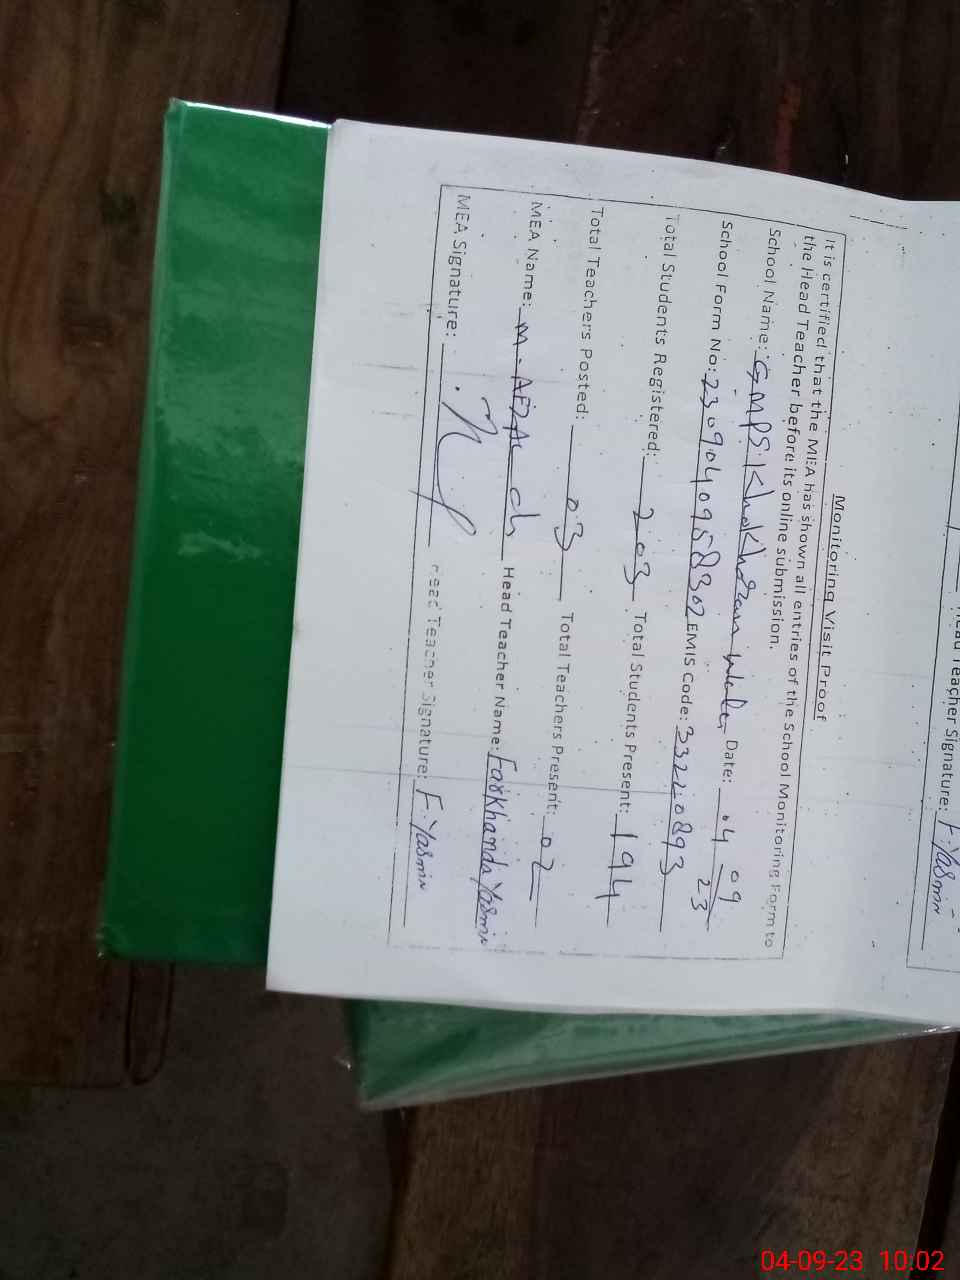 Monitoring Visit Proof
It is certified that the MEA has shown all entries of the School Monitoring Form to
the Head Teacher before its online submission.
School Name: GMPS Khokhran Date: 04 09 23
School Form No: 2309040958302 EMIS Code: 33220893
Total Students Registered: 203 Total Students Present: 194
Total Teachers Posted: 03 Total Teachers Present: 02
MEA Name: M. AFZAL ch Head Teacher Name: Farkhanda Yasmin
MEA Signature: Head Teacher Signature: F. Yasmin
Head Teacher Signature: F. Yasmin
04-09-23 10:02